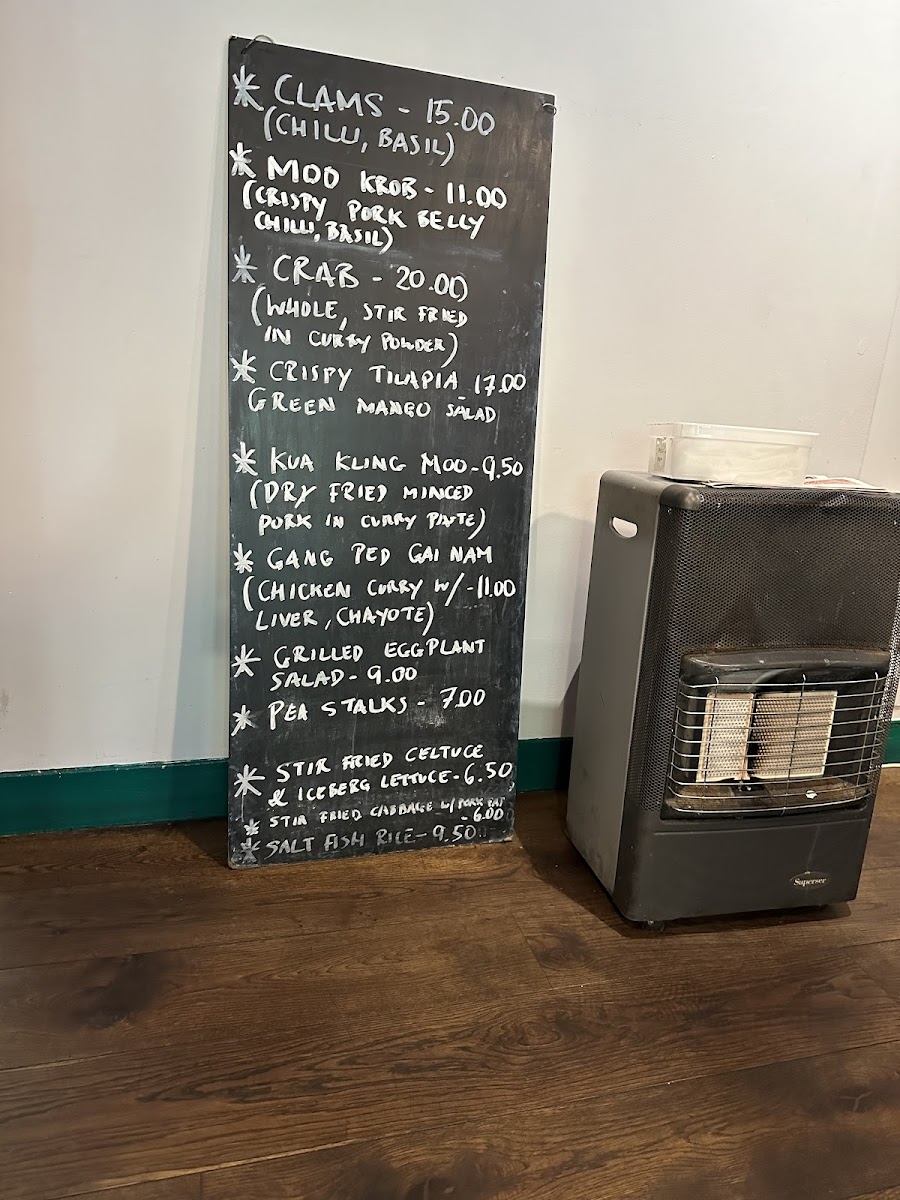 * CLAMS - 15.00
(CHILLI, BASIL)
* MOO KROB - 11.00
(CRISPY PORK BELLY
CHILLI, BASIL)
* CRAB - 20.00
(WHOLE, STIR FRIED
IN CURRY POWDER)
* CRISPY TILAPIA - 17.00
GREEN MANGO SALAD
* KUA KLING MOO - 9.50
(DRY FRIED MINCED
PORK IN CURRY PASTE)
* GANG PED GAI NAM
(CHICKEN CURRY W/ - 11.00
LIVER, CHAYOTE)
* GRILLED EGGPLANT
SALAD - 9.00
* PEA STALKS - 7.00
* STIR FRIED CELTUCE
& ICEBERG LETTUCE - 6.50
* STIR FRIED CABBAGE W/ PORK FAT
- 6.00
* SALT FISH RICE - 9.50
Superser